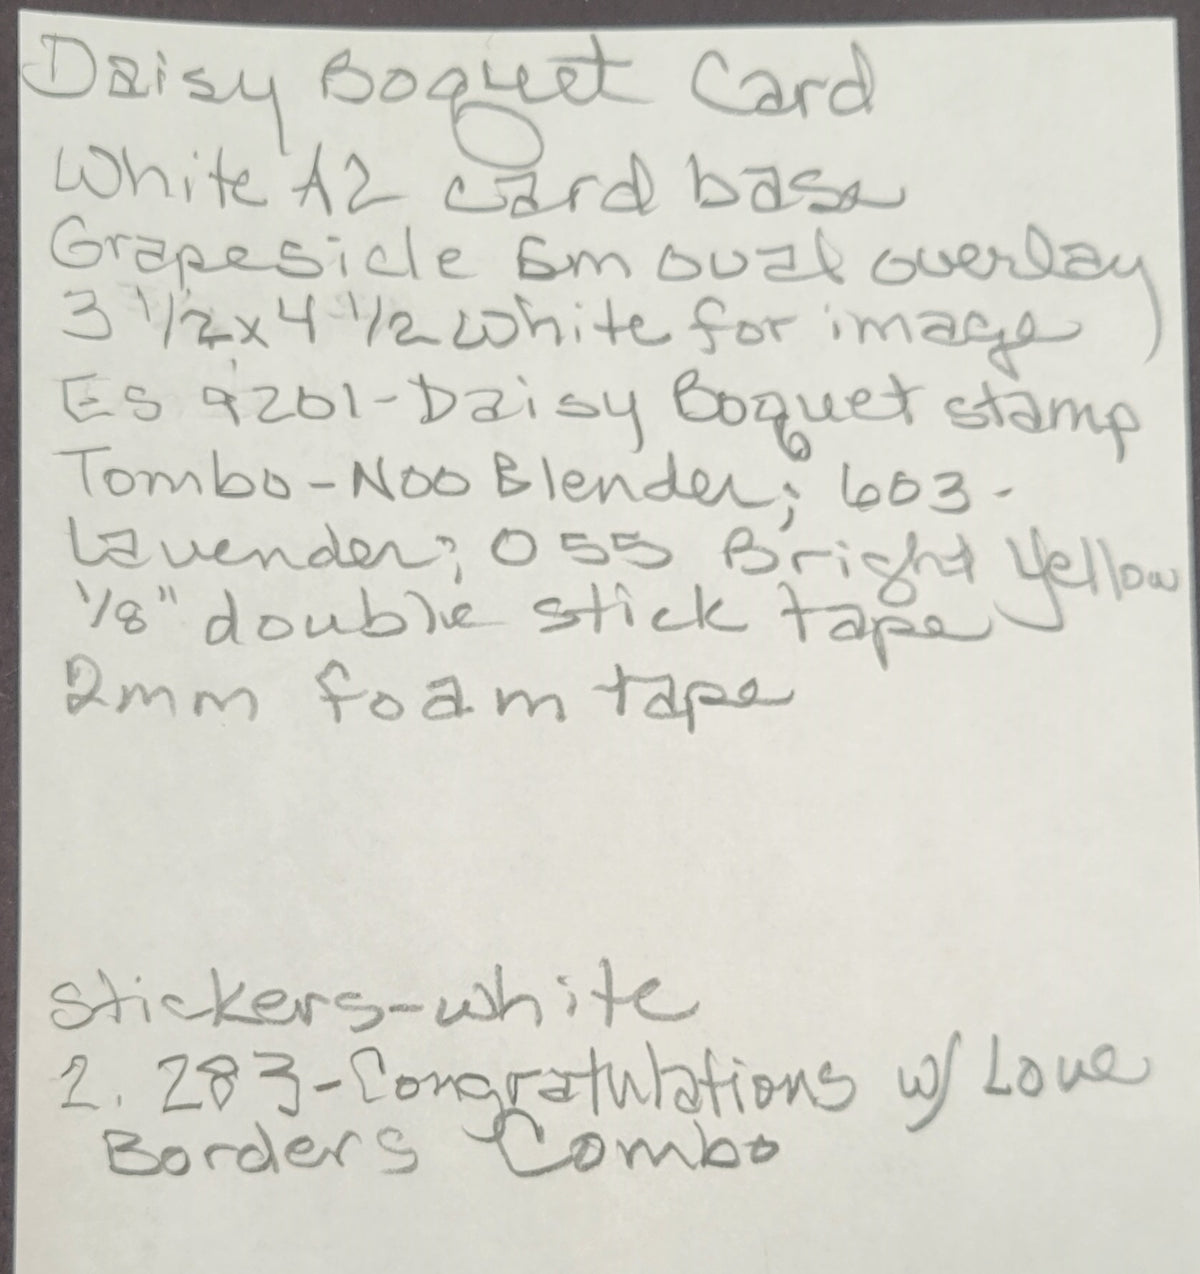 Daisy Boquet Card
White A2 card base
Grapesicle Sm oval overlay
3 1/2 x 4 1/2 white for image
ES 9201 - Daisy Boquet stamp
Tombo - N00 Blender; 603 -
Lavender; 055 Bright Yellow
1/8" double stick tape
2mm foam tape
Stickers - white
2. 283 - Congratulations w/ Love
Borders Combo